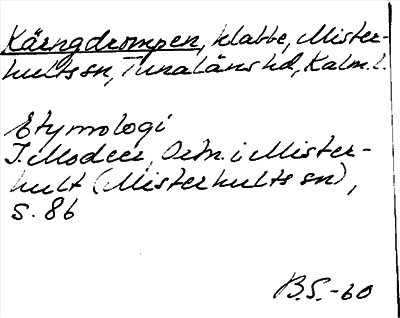 Kärngdrompen, klabbe, Mister-
hults sn, Tunaläns hd, Kalm. l.
Etymologi
I. Modeer, Ortn. i Mister-
hult (Misterhults sn),
S. 86
B.S.-60